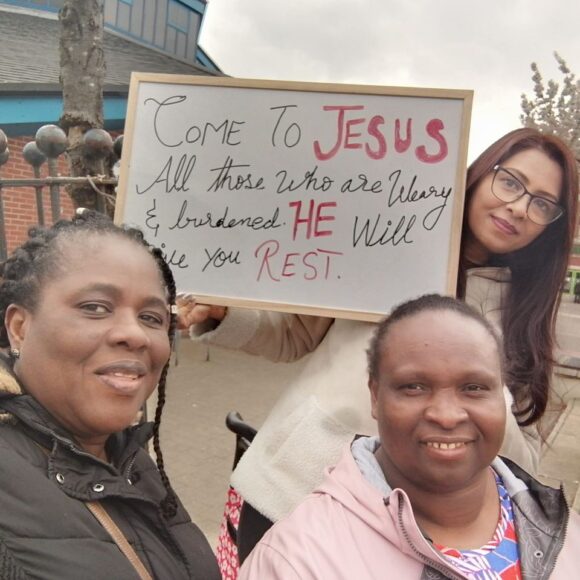 COME TO JESUS
All those who are Weary
& burdened. HE Will
ive you REST.